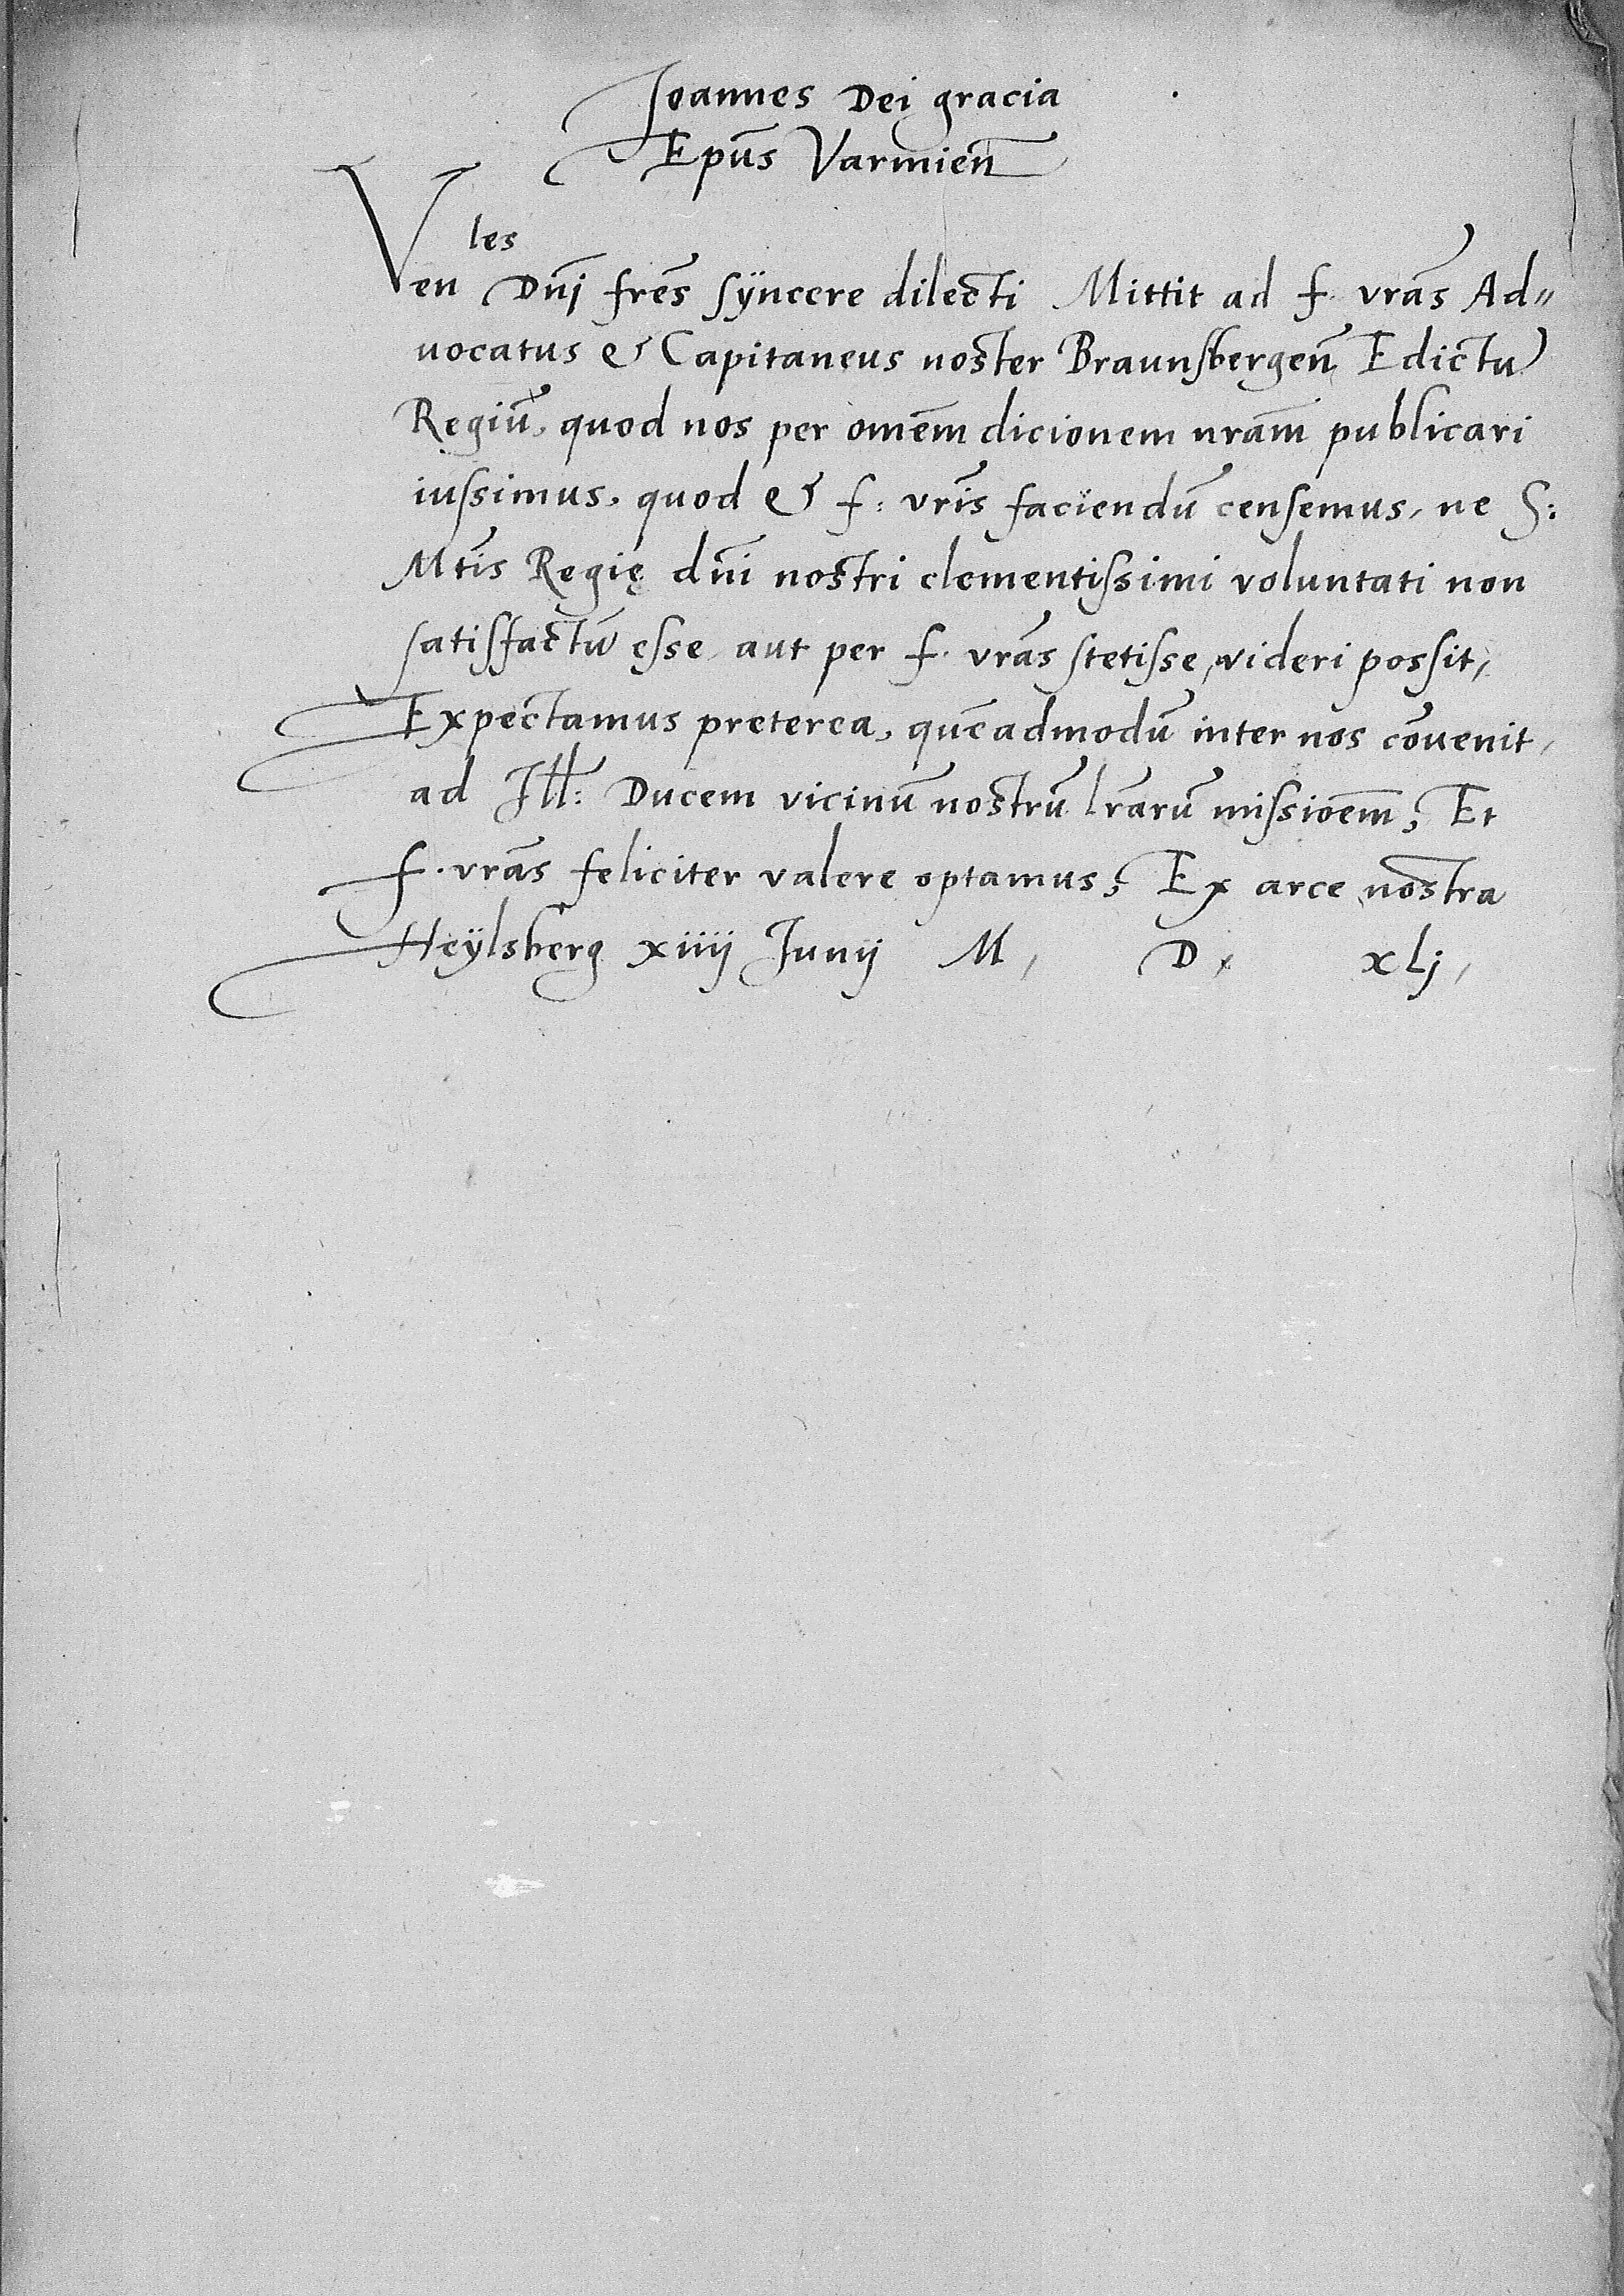 Joannes Dei gracia
Epũs Varmien̄
Venles Dnĩ frẽs sÿncere dilecti Mittit ad f. vrãs Ad„
uocatus & Capitaneus noster Braunsbergeñ Edictũ
Regiũ, quod nos per omẽm dicionem nrãm publicari
iussimus, quod & f: vrĩs faciendũ censemus, ne S:
Mtĩs Regię dnĩ nostri clementissimi voluntati non
satisfactũ esse, aut per f. vrãs stetisse, videri possit,
Expectamus preterea, quẽadmodũ inter nos cõuenit,
ad Ill: Ducem vicinũ nostrũ lrãrũ missioẽm; Et
f. vrãs feliciter valere optamus; Ex arce nostra
Heÿlsberg xiiij Junij M, D, xlj,